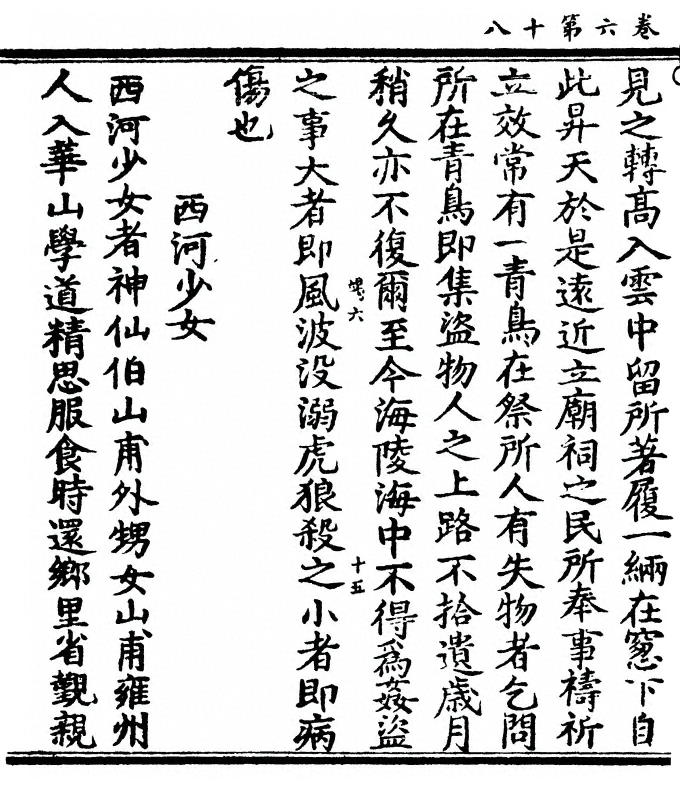 卷六第十八
見之轉高入雲中留所著履一緉在窓下自
此昇天於是遠近立廟祠之民所奉事禱祈
立效常有一青鳥在祭所人有失物者乞問
所在青鳥即集盜物人之上路不拾遺歳月
稍久亦不復爾至今海陵海中不得為姦盜
之事大者即風波没溺虎狼殺之小者即病
傷也
西河少女
西河少女者神仙伯山甫外甥女山甫雍州
人入華山學道精思服食時還鄉里省覲親
六
十五